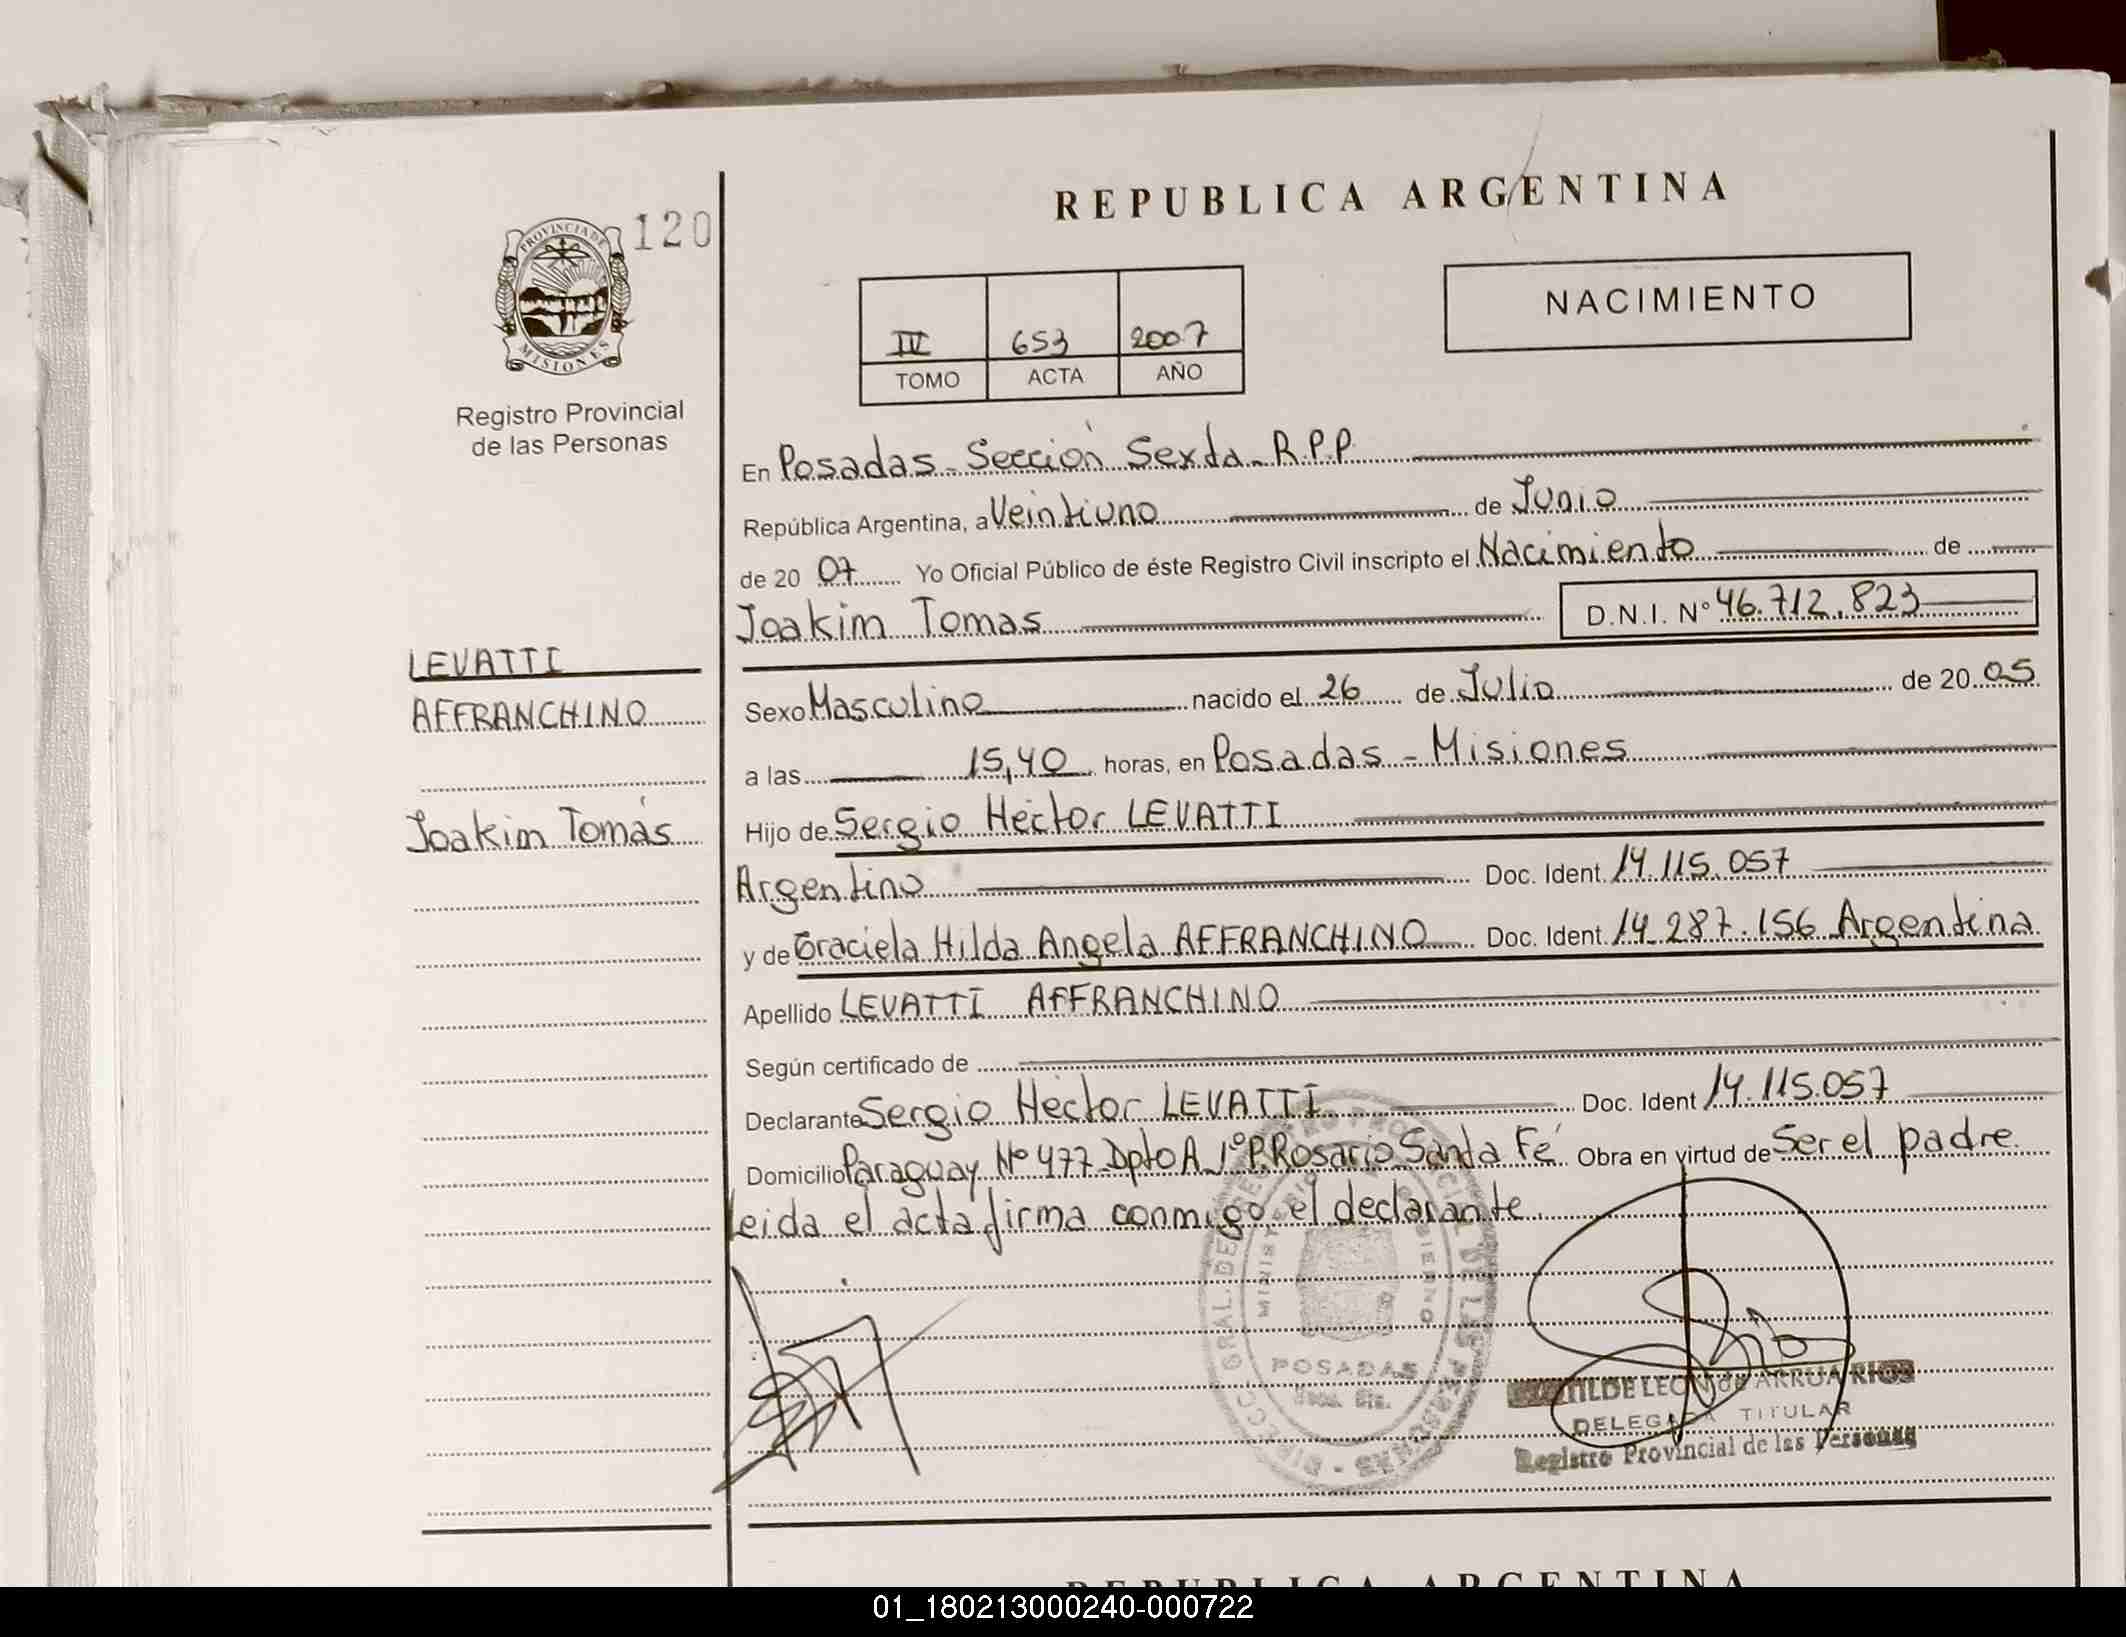 REPUBLICA ARGENTINA
PROVINCIA DE
MISIONES
120
Registro Provincial
de las Personas
IV 653 2007
TOMO ACTA AÑO
NACIMIENTO
En Posadas - Sección Sexta - R.P.P.
República Argentina, a Veintiuno de Junio
de 20 07 Yo Oficial Público de éste Registro Civil inscripto el Nacimiento de
Joakim Tomas D.N.I. Nº 46.712.823
LEVATTI
AFFRANCHINO
Joakim Tomás
Sexo Masculino nacido el 26 de Julio de 20 05
a las 15,40 horas, en Posadas - Misiones
Hijo de Sergio Héctor LEVATTI
Argentino Doc. Ident. 14.115.057
y de Graciela Hilda Angela AFFRANCHINO Doc. Ident. 14.287.156 Argentina
Apellido LEVATTI AFFRANCHINO
Según certificado de
Declarante Sergio Héctor LEVATTI Doc. Ident 14.115.057
Domicilio Paraguay Nº 477 Dpto A 1º P. Rosario Santa Fé Obra en virtud de Ser el padre
Leida el acta firma conmigo el declarante.
POSADAS
LEON de ARRUA RIOS
DELEGADA TITULAR
Registro Provincial de las Personas
REPUBLICA ARGENTINA
01_180213000240-000722